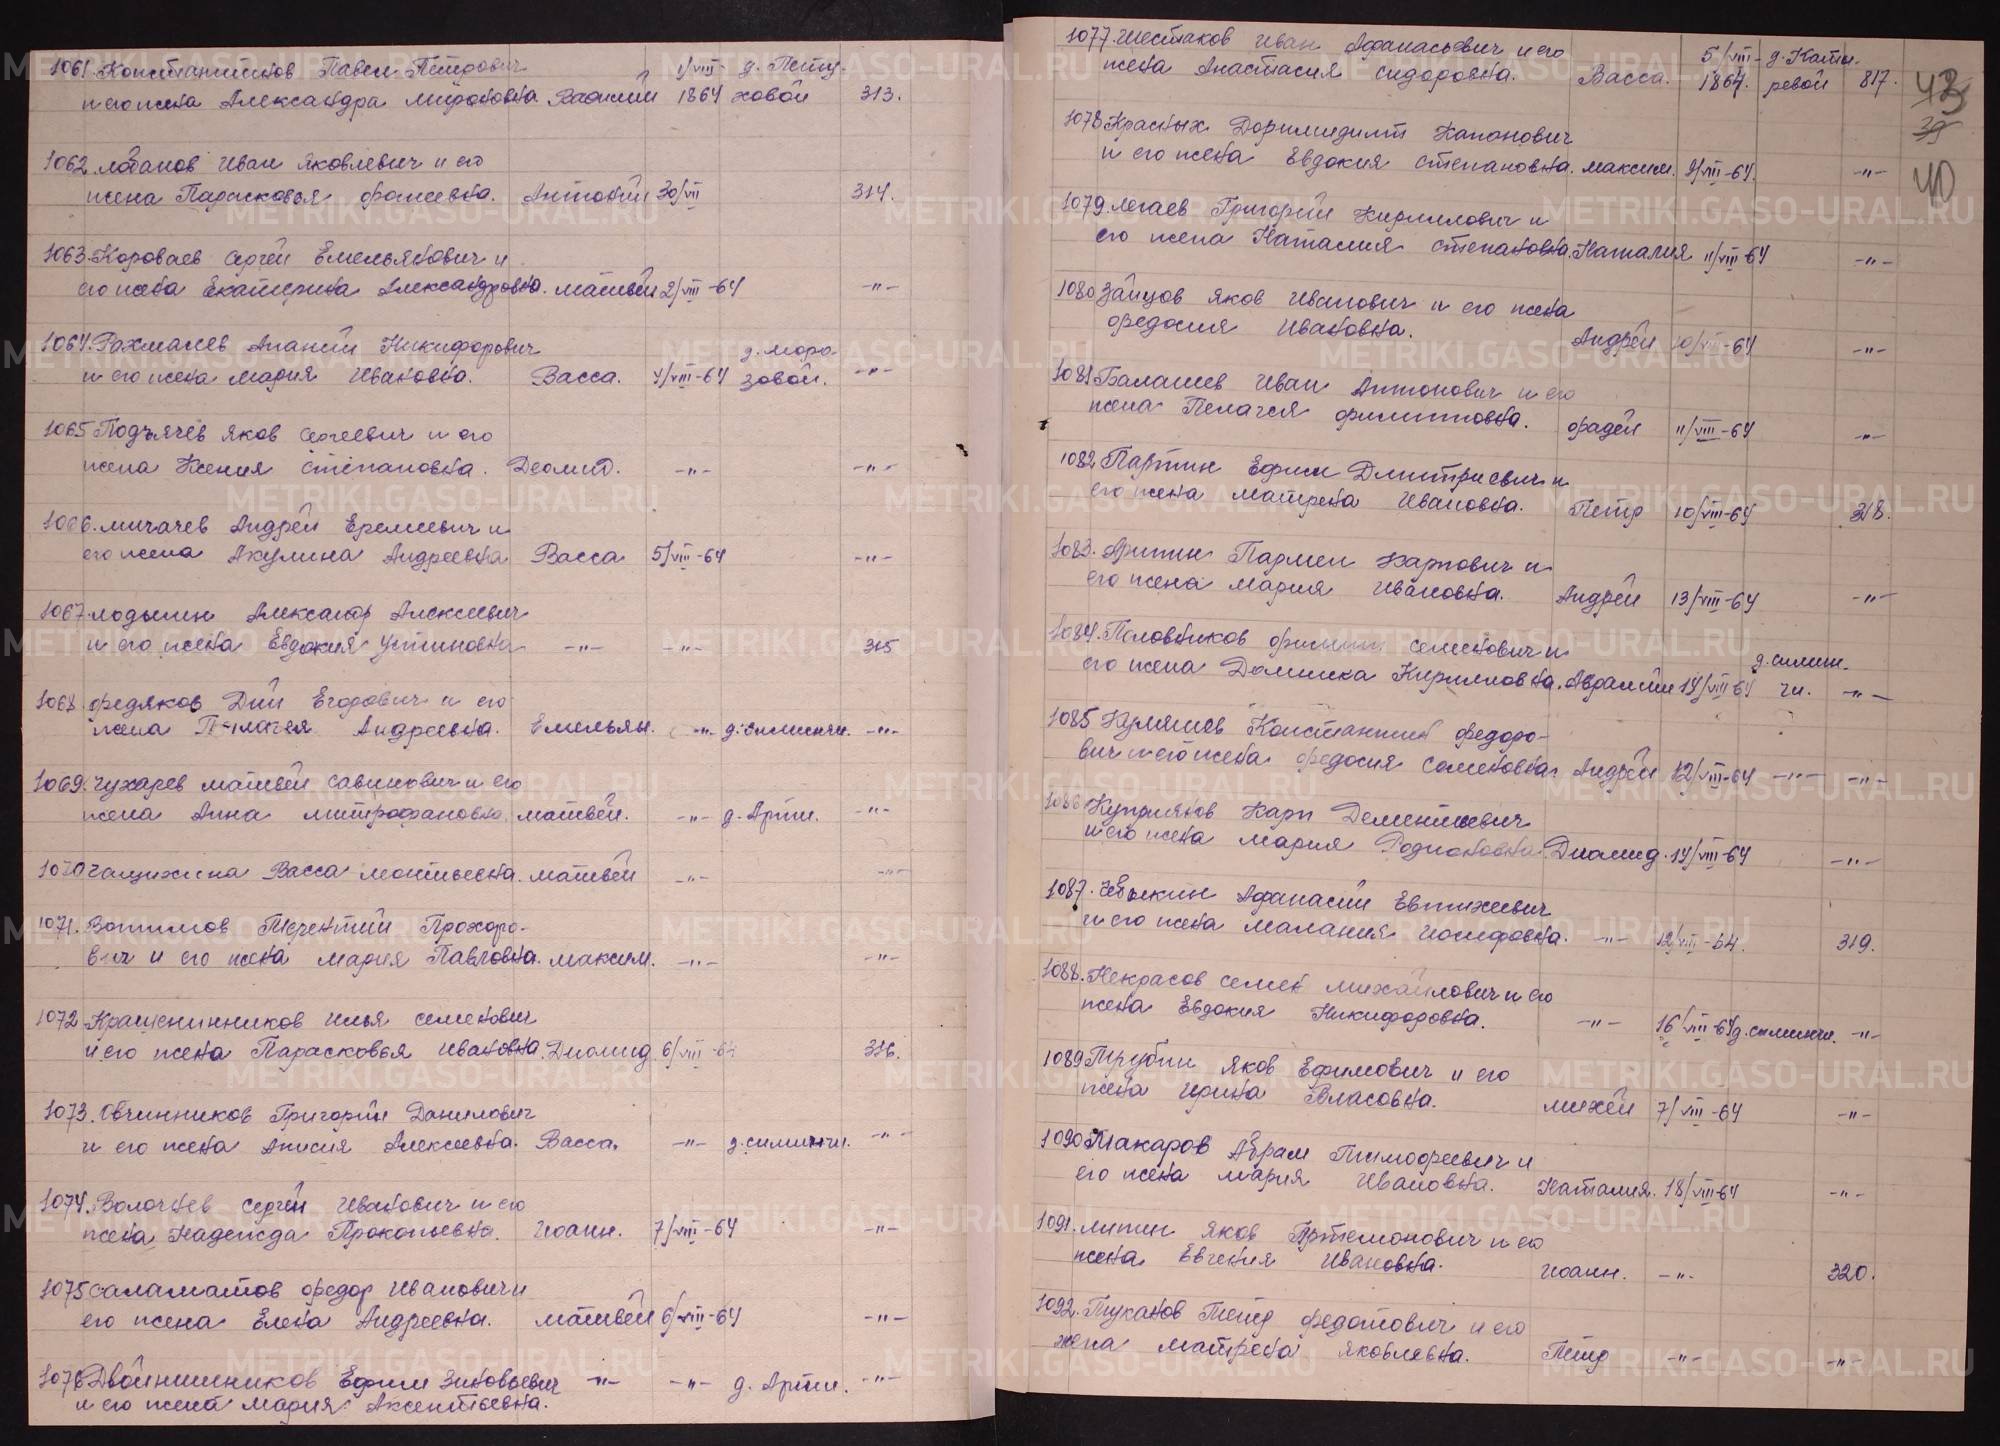 1061. Константинов Павел Петрович 1/VIII- д. Пету-
и его жена Александра Мироновна. Василий 1864 ховой 313.
1062. Лобанов Иван Яковлевич и его
жена Парасковья Фокеевна. Антоний 30/VII 314.
1063. Короваев Сергей Емельянович и
его жена Екатерина Александровна. Матвей 2/VIII-64 -"-
1064. Рахманев Ананий Никифорович д. Моро-
и его жена Мария Ивановна. Васса. 4/VIII-64 зовой. -"-
1065 Подъячев Яков Сергеевич и его
жена Ксения Степановна. Деомид. -"- -"-
1066. Мичачев Андрей Еремеевич и
его жена Акулина Андреевна Васса 5/VIII-64 -"-
1067. Лодыгин Александр Алексеевич
и его жена Евдокия Устиновна -"- -"- 315
1068. Федяков Дий Егорович и его
жена Пелагея Андреевна. Емельян. -"- д. Симинчи. -"-
1069. Чухарев Матвей Савинович и его
жена Анна Митрофановна. Матвей. -"- д. Арти. -"-
1070 Чащихина Васса Мокиевна. Матвей -"- -"-
1071. Вотинов Терентий Прохоро-
вич и его жена Мария Павловна. Максим. -"- -"-
1072 Крашенинников Илья Семенович
и его жена Парасковья Ивановна. Диомид 6/VIII-64 316.
1073. Овчинников Григорий Данилович
и его жена Анисия Алексеевна. Васса. -"- д. Симинчи. -"-
1074. Волочнев Сергей Иванович и его
жена Надежда Прокопьевна. Иоанн. 7/VIII-64 -"-
1075 Саламатов Федор Иванович и
его жена Елена Андреевна. Матвей 6/VIII-64 -"-
1076 Двойнишников Ефим Зиновьевич -"- -"- д. Арти. -"-
и его жена Мария Аксентьевна.
1077. Шестаков Иван Афанасьевич и его 5/VIII- д. Кати-
жена Анастасия Сидоровна. Васса. 1864. ревой 317.
43
39
40
1078 Красных Доримидонт Капонович
и его жена Евдокия Степановна. Максим. 9/VIII-64. -"-
1079. Легаев Григорий Кирилович и
его жена Наталия Степановна. Наталия 11/VIII-64 -"-
1080 Зайцов Яков Иванович и его жена
Федосия Ивановна. Андрей 10/VIII-64 -"-
1081 Балашев Иван Антонович и его
жена Пелагея Филипповна. Фадей 11/VIII-64 -"-
1082 Партин Ефим Дмитриевич и
его жена Матрена Ивановна. Петр 10/VIII-64 318.
1083. Аритин Пармен Карпович и
его жена Мария Ивановна. Андрей 13/VIII-64 -"-
1084. Половников Филипп Семенович и д. Симин-
его жена Домника Кириловна. Авраамий 14/VIII-64 чи. -"-
1085 Куляшев Константин Федоро-
вич и его жена Федосия Семеновна. Андрей 12/VIII-64 -"- -"-
1086 Куприянов Карп Дементиевич
и его жена Мария Родионовна. Диомид. 14/VIII-64 -"-
1087. Чебыкин Афанасий Евтихеевич
и его жена Малания Иосифовна. -"- 12/VIII-64. 319.
1088. Некрасов Семен Михайлович и его
жена Евдокия Никифоровна. -"- 16/VIII-64 д. Симинчи. -"-
1089 Трубин Яков Ефимович и его
жена Ирина Власовна. Михей 7/VIII-64 -"-
1090 Макаров Абрам Тимофеевич и
его жена Мария Ивановна. Наталия. 18/VIII-64 -"-
1091. Липин Яков Артемонович и его
жена Евгения Ивановна. Иоанн. -"- 320.
1092. Туканов Петр Федотович и его
жена Матрена Яковлевна. Петр -"- -"-
METRIKI.GASO-URAL.RU